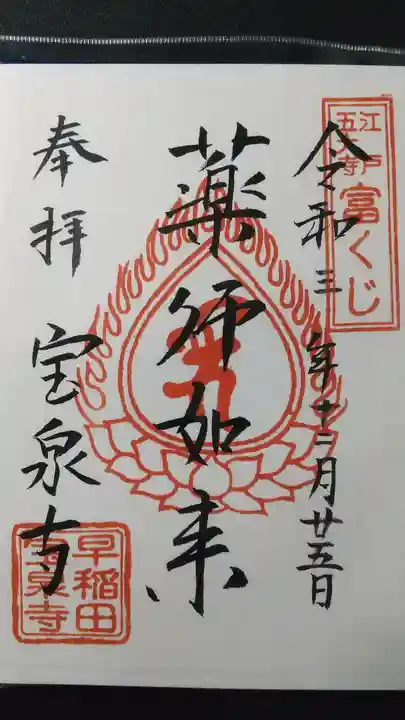 江戸
五大寺
富くじ
令和三年十二月廿五日
薬師如来
奉拝 宝泉寺
早稲田
宝泉寺